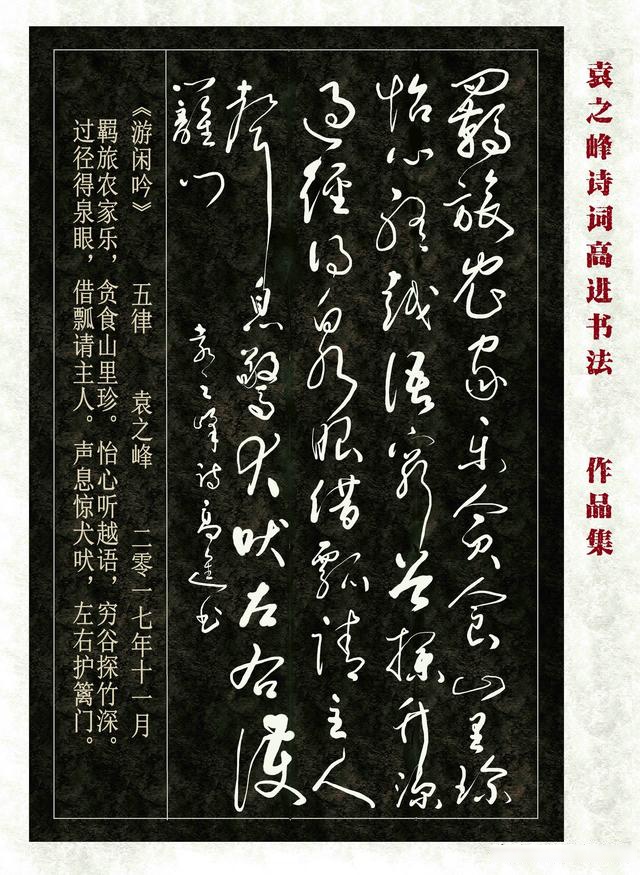 袁之峰诗词高进书法 作品集
羈旅农家乐贪食山里珍
怡心听越语穷谷探竹深
过徑得泉眼借瓢请主人
声息驚犬吠左右護
籬门
袁之峰诗高進书
《游闲吟》 五律 袁之峰 二零一七年十一月
羁旅农家乐，贪食山里珍。怡心听越语，穷谷探竹深。
过径得泉眼，借瓢请主人。声息惊犬吠，左右护篱门。